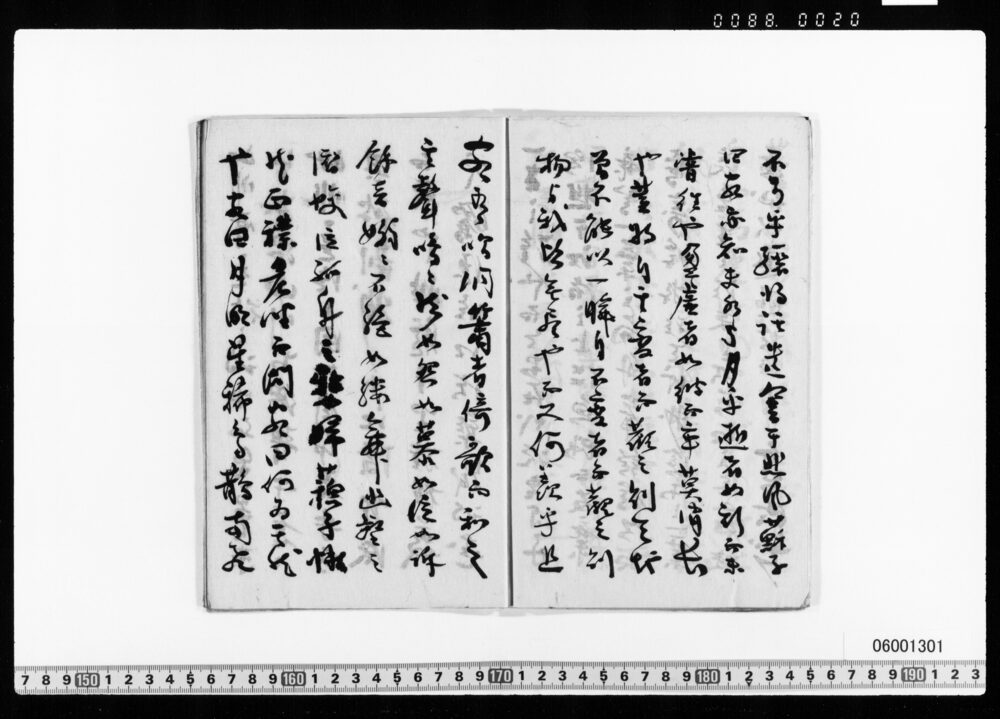 0088. 0020
不可乎驟得託遺響於悲風蘇子
曰客亦知夫水与月乎逝者如斯而未
嘗往也盈虚者如彼而卒莫消長
也蓋将自其変者而觀之則天地
曽不能以一瞬自不変者而觀之則
物与我皆無尽也而又何羨乎且
客有吹洞簫者倚歌而和之
其聲嗚々然如怨如慕如泣如訴
餘音嫋々不絶如縷舞幽壑之
潜蛟泣孤舟之嫠婦蘇子愀
然正襟危坐而問客曰何為其然
也客曰月明星稀烏鵲南飛
06001301
7 8 9 150 1 2 3 4 5 6 7 8 9 160 1 2 3 4 5 6 7 8 9 170 1 2 3 4 5 6 7 8 9 180 1 2 3 4 5 6 7 8 9 190 1 2 3